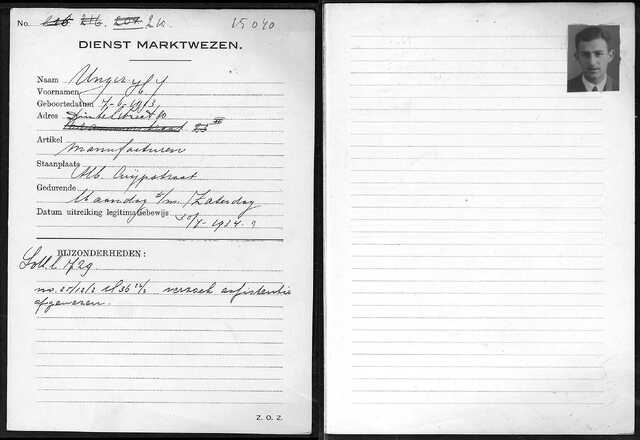 No. 216 216. 207. 210. 15040
DIENST MARKTWEZEN.
Naam Unger H J
Voornamen
Geboortedatum 7-6-1913
Adres straat 10
II
Artikel
Manufacturen
Staanplaats
Alb. Cuijpstraat
Gedurende
Maandag t/m. Zaterdag
Datum uitreiking legitimatiebewijs
BIJZONDERHEDEN:
no. 25/12/2 36 verzoek assistentie
afgewezen.
Z.O.Z.